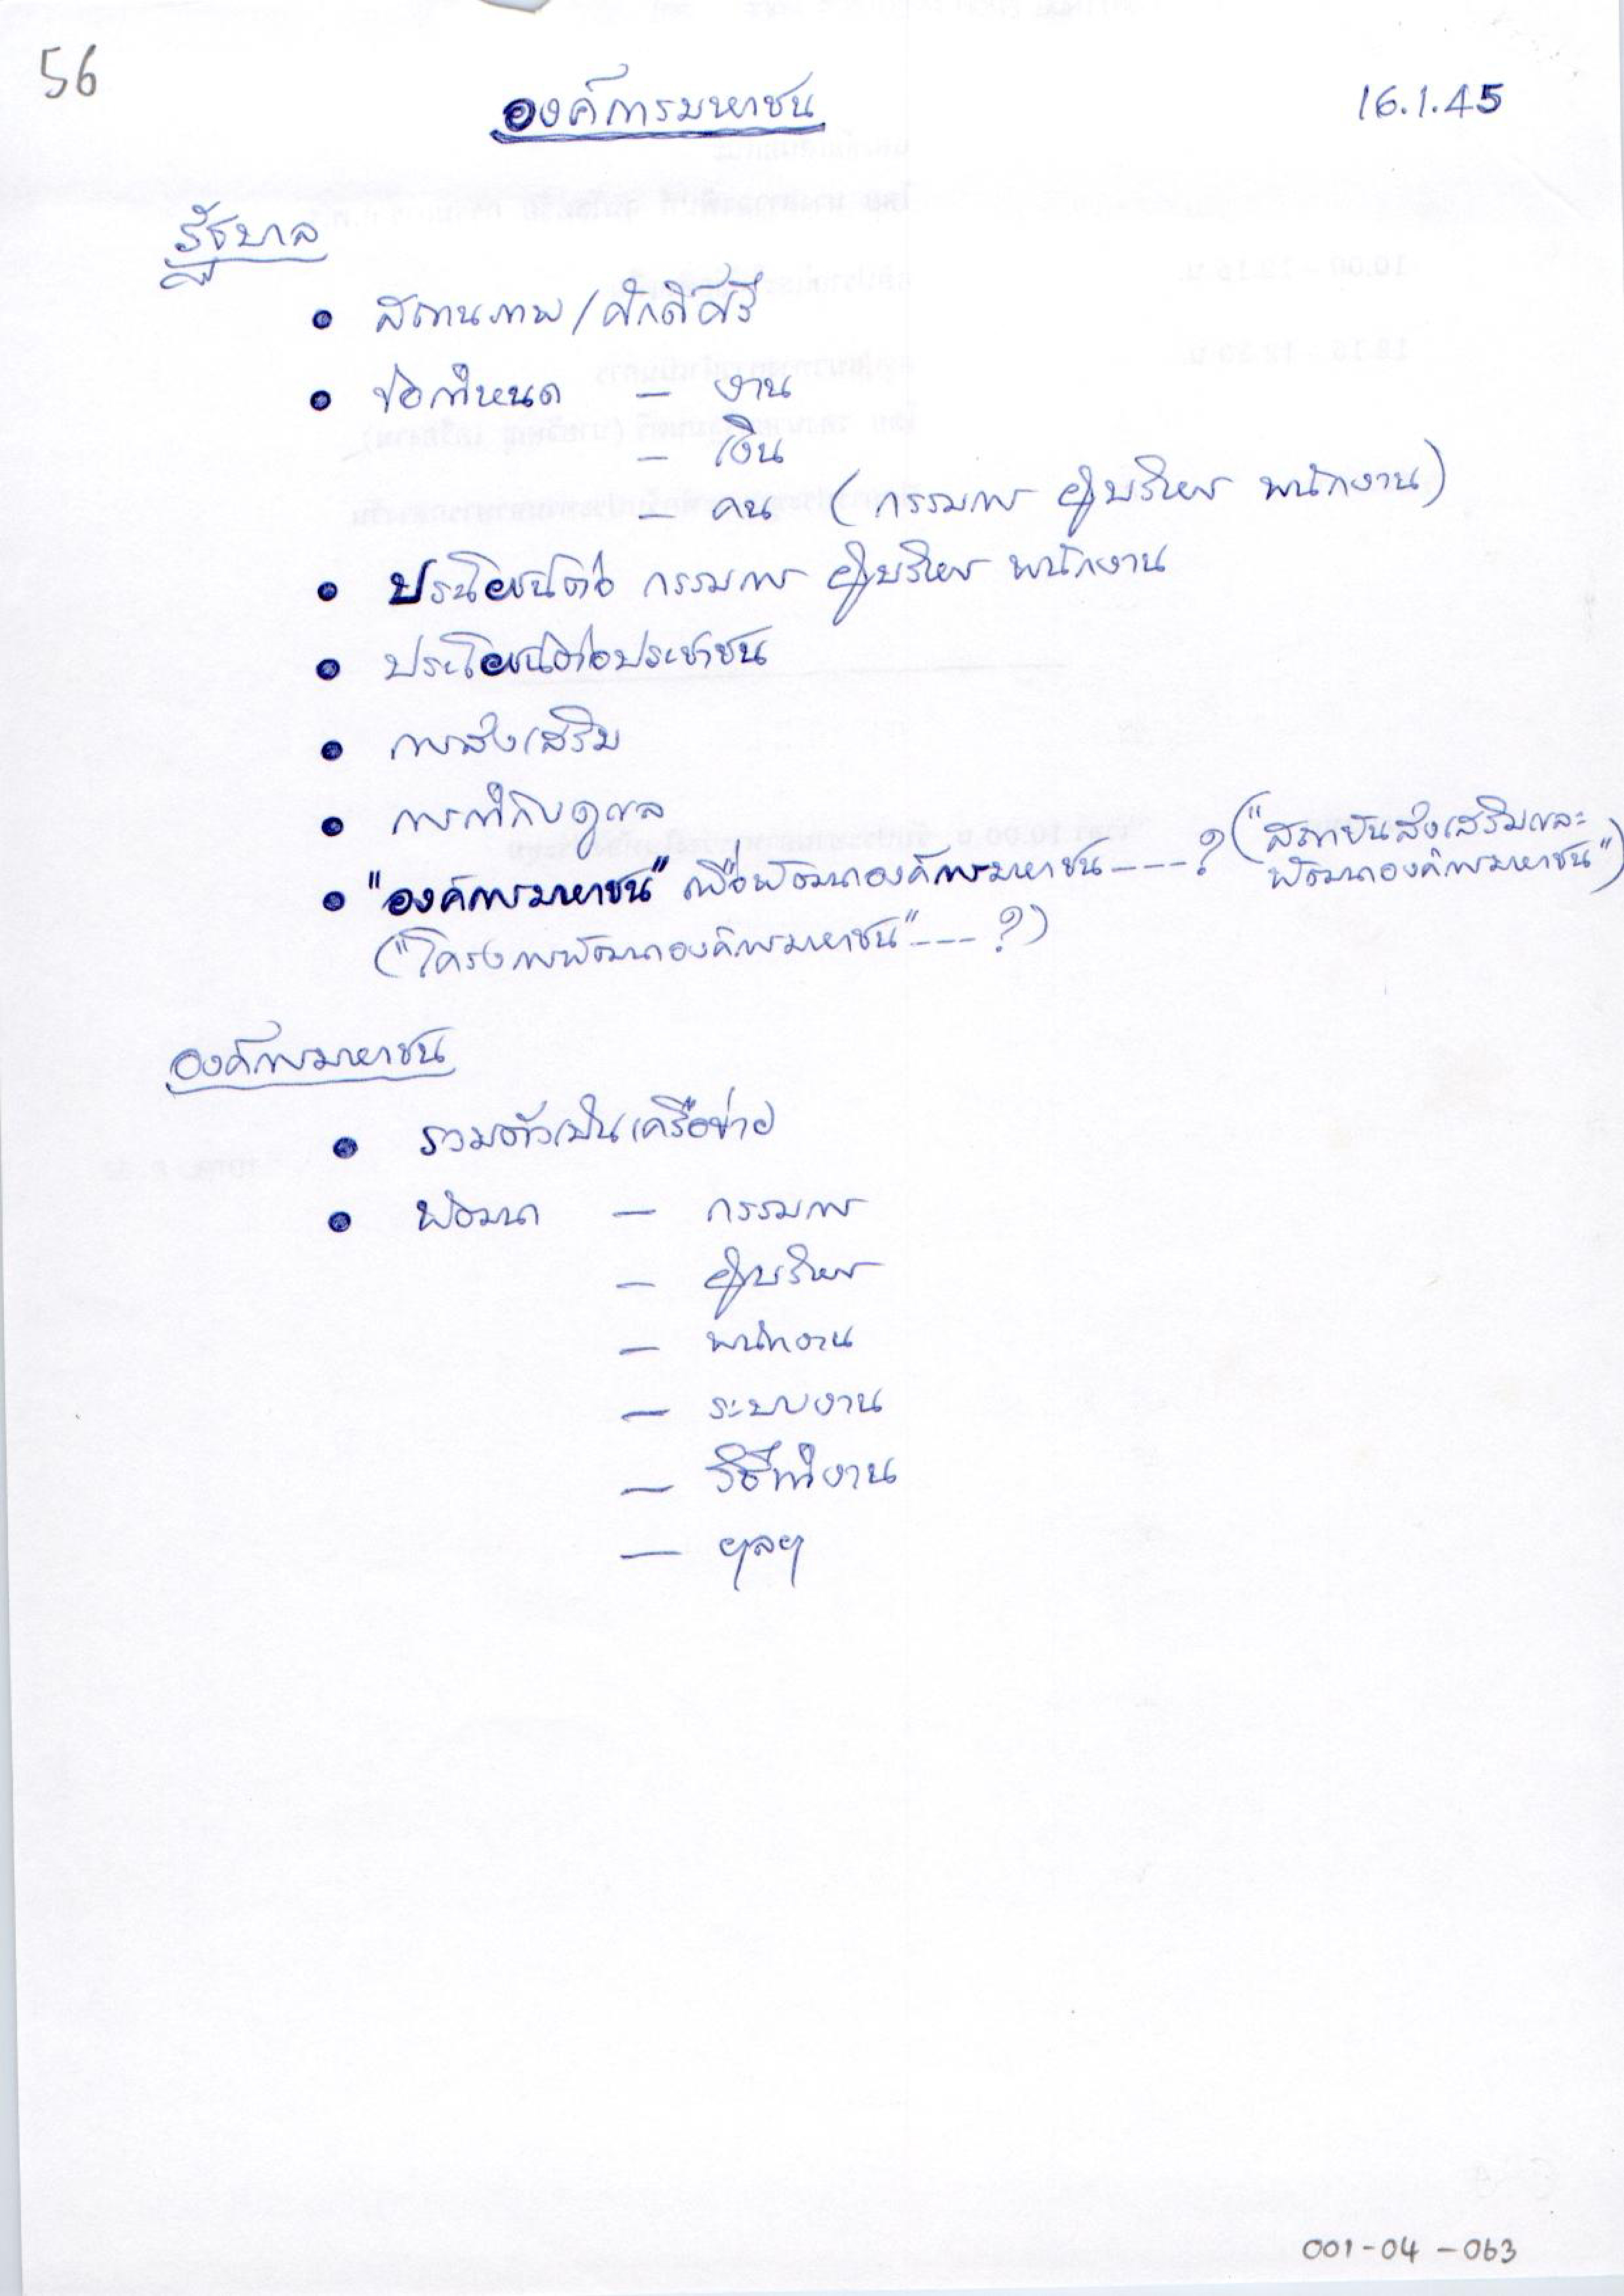 56
องค์การมหาชน
16.1.45
รัฐบาล
• สถานภาพ/ศักดิ์ศรี
• ข้อกำหนด — งาน
— เงิน
— คน (กรรมการ ผู้บริหาร พนักงาน)
• ประโยชน์ต่อ กรรมการ ผู้บริหาร พนักงาน
• ประโยชน์ต่อประชาชน
• การส่งเสริม
• การกำกับดูแล
• "องค์การมหาชน" เพื่อพัฒนาองค์การมหาชน ----? ("สถาบันส่งเสริมและ
พัฒนาองค์การมหาชน")
("โครงการพัฒนาองค์การมหาชน" ---- ?)
องค์การมหาชน
• รวมตัวเป็นเครือข่าย
• พัฒนา — กรรมการ
— ผู้บริหาร
— พนักงาน
— ระบบงาน
— วิธีทำงาน
— ฯลฯ
001-04-063